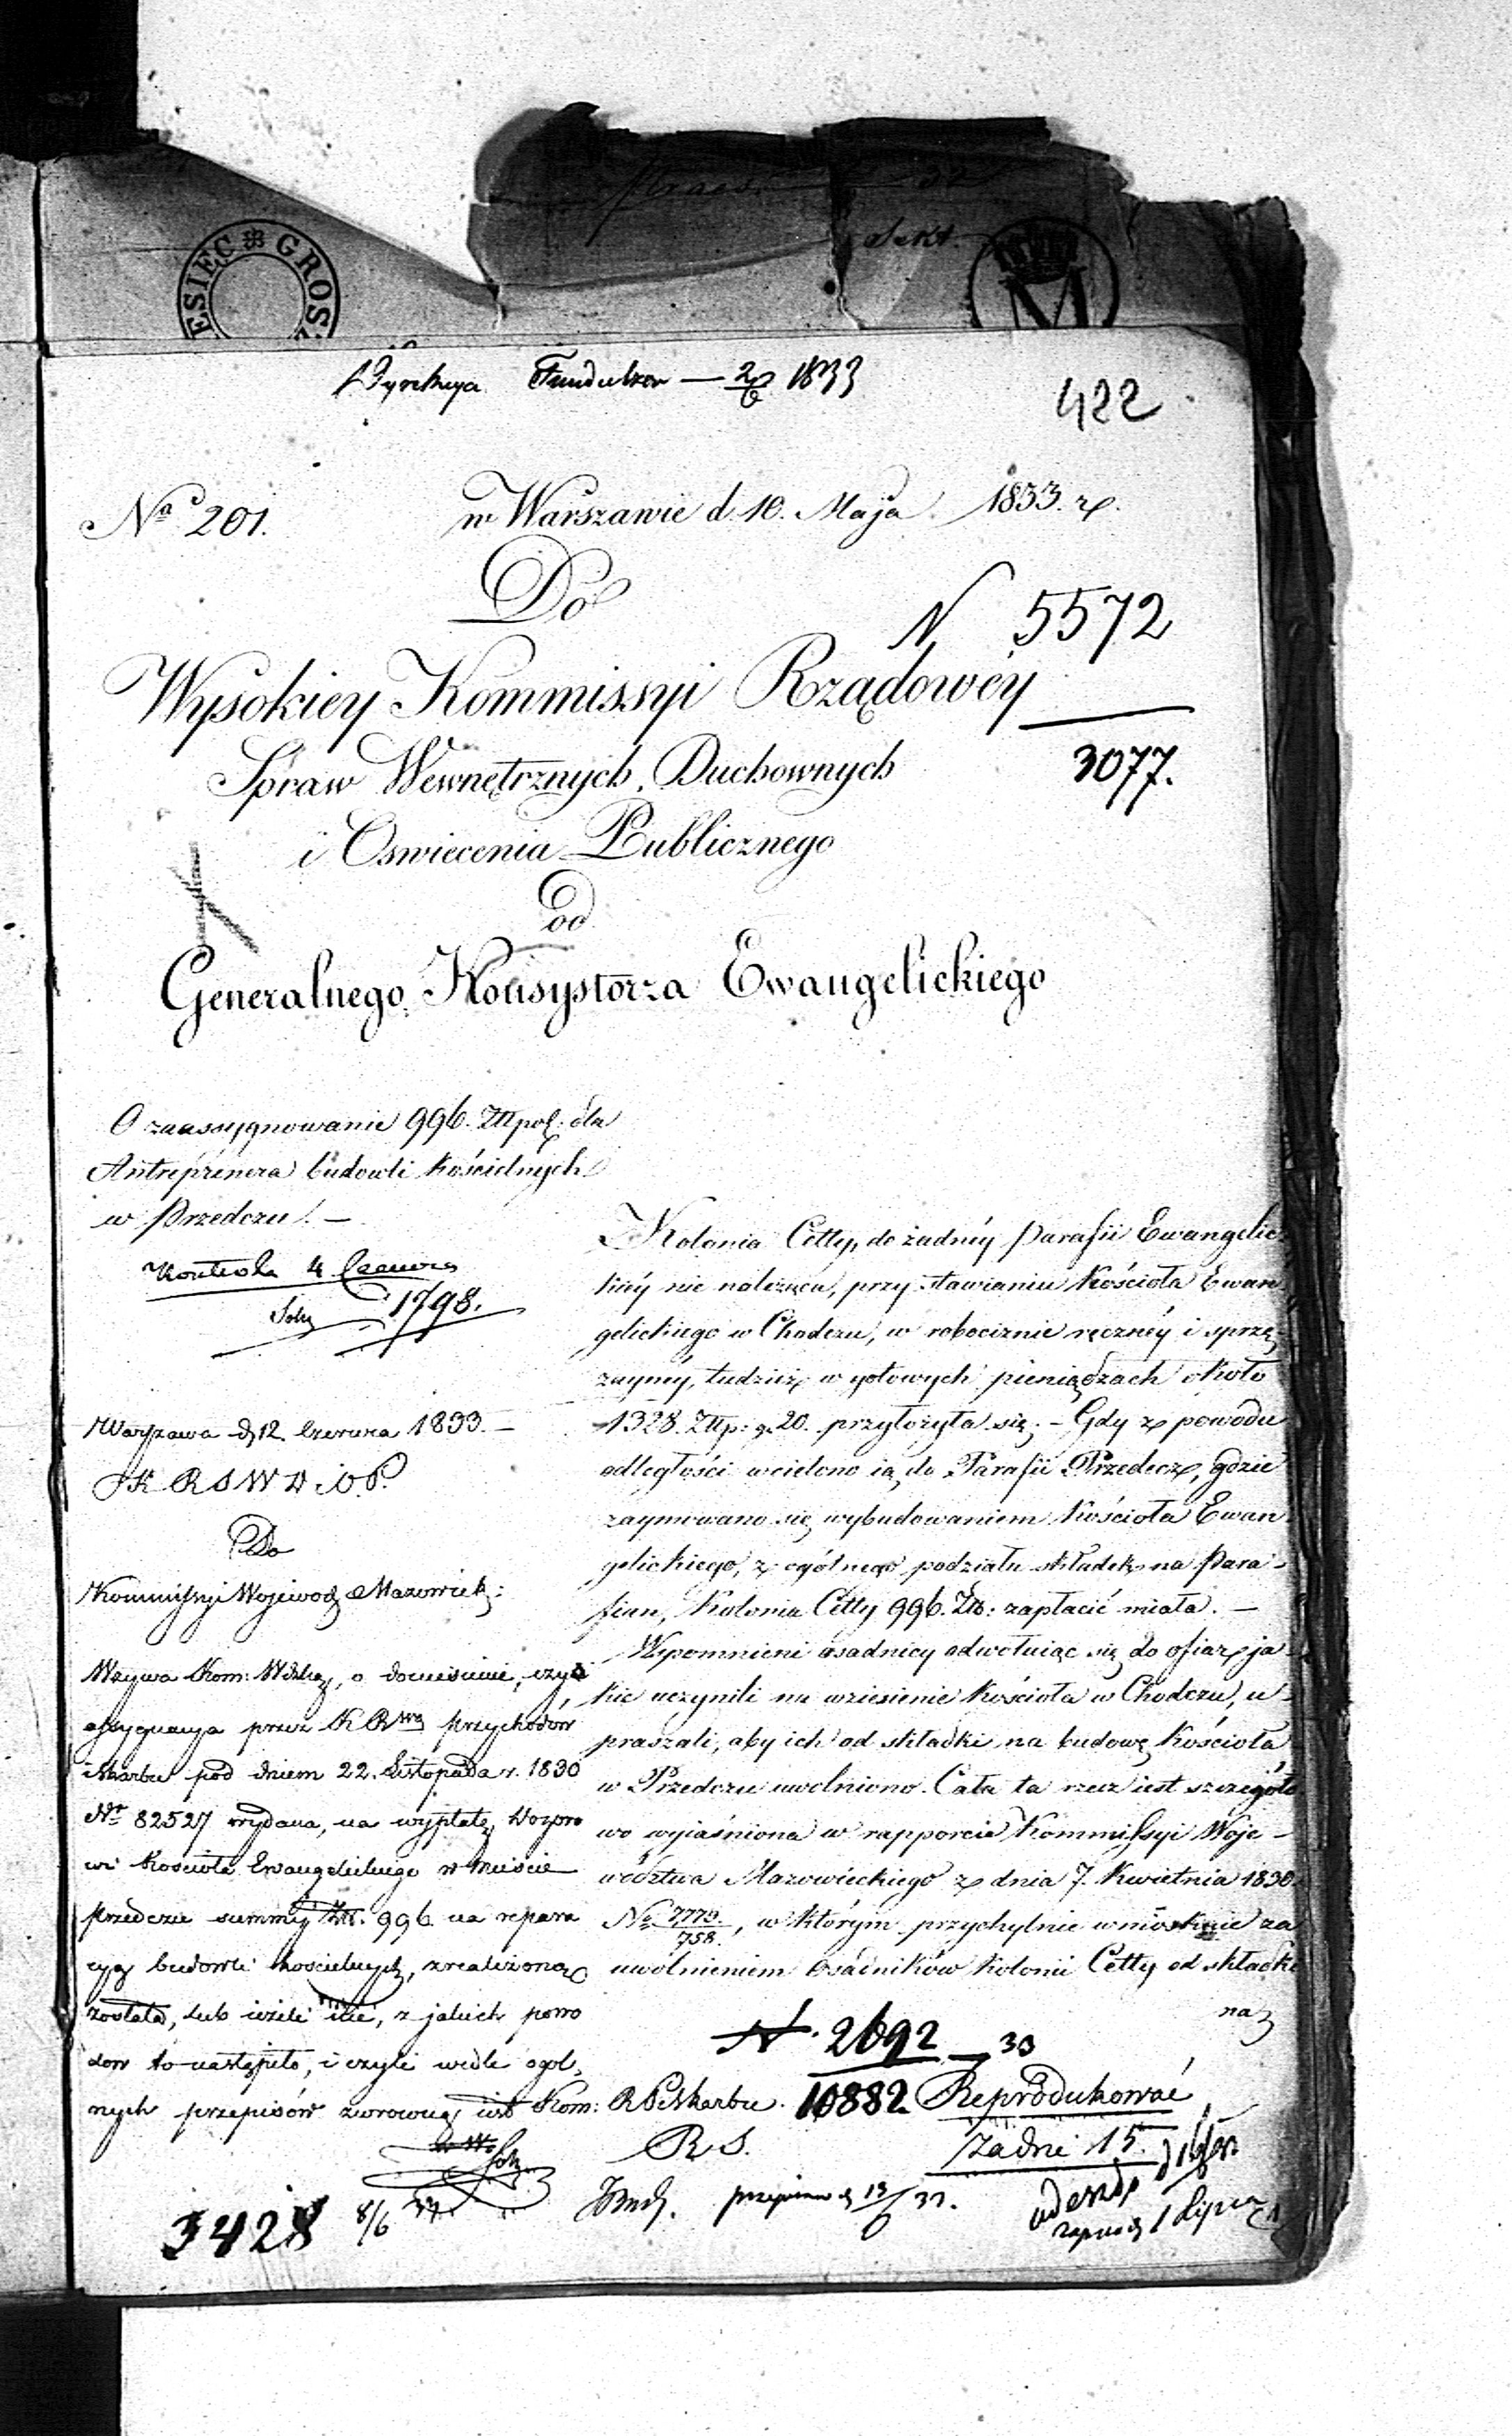 ESIEC ⌘ GROSZ
M
Dyrekcya Funduszow — 2/6 1833
422
No 201. w Warszawie d. 10. Maja 1833. r.
Do
N 5572
Wysokiey Kommissyi Rządowéy
3077.
Spraw Wewnętrznych, Duchownych
i Oswiecenia Publicznego
od
Generalnego Konsystorza Ewangelickiego
O zaassygnowanie 996. Złł pol: dla
Antreprenera budowli kościelnych
w Przedczu. —
Kontrola 4 Czerwca
1798.
Warszawa d 12. Czerwca 1833. —
K R S W D i O. P.
Do
Kommissyi Wojewodz. Mazowieck:
Wzywa Kom: Wdzką, o doniesienie, czyli
assygnacya przez K R przychodow
i Skarbu pod dniem 22. Listopada r. 1830
Nr 82527 wydana, na wypłatę Dozoro
wi Kościoła Ewangelickiego w Mieście
Przedczu summy Złł. 996 na repara
cyą budowli kościelnych, zrealizoną
została, lub ieżeli nie, z jakich powo
dow to nastąpiło, i czyli wedle ogol,
nych przepisów
8/6
3428
Kolonia Cetty, do żadnéy Parafii Ewangelic
kiéy nie należąca, przy stawianiu Kościoła Ewan
gelickiego w Chodczu, w robociznie ręcznéy i sprzę,
zaynéy, tudzież w gotowych pieniądzach około
1328. Złlp: g. 20. przyłożyła się. – Gdy z powodu
odległości wcielono ią do Parafii Przedecz, gdzie
zaymowano się wybudowaniem Kościoła Ewan
gelickiego, z ogólnego podziału składek na Para-
fian, Kolonia Cetty 996. Zło: zapłacić miała. —
Wspomnieni osadnicy odwołuiąc się do ofiar ja-
kie uczynili na wzniesienie Kościoła w Chodczu, u-
praszali, aby ich od składki na budowę Kościoła
w Przedczu uwolniono. Cała ta rzecz iest szczegóło
wo wyiaśniona w rapporcie Kommissyi Woje-
wództwa Mazowieckiego z dnia 7. Kwietnia 1830.
No 7775/758., w którym przychylnie wnioskuie za
uwolnieniem Osadników Kolonii Cetty od składki
na
N. 2692 — 33
Kom: R P i Skarbu. 10882 Reprodukować
R S. za dni 15.
przepisano d 13/6 33.
odeszło
1 Lipca